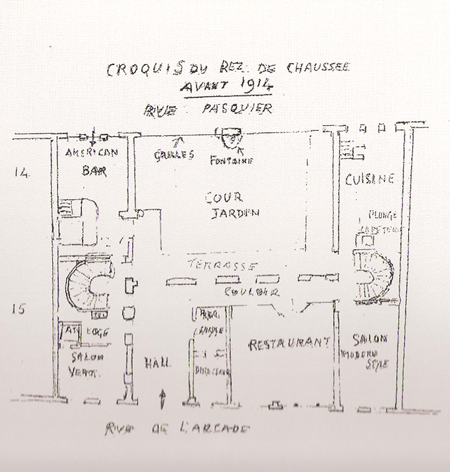 CROQUIS DU REZ DE CHAUSSEE
AVANT 1914
RUE PASQUIER
14
AMERICAN
BAR
GRILLES
FONTAINE
COUR
JARDIN
CUISINE
PLONGE
TERRASSE
COULOIR
15
LOGE
SALON
VERT
HALL
RESTAURANT
SALON
MODERN
STYLE
RUE DE L'ARCADE